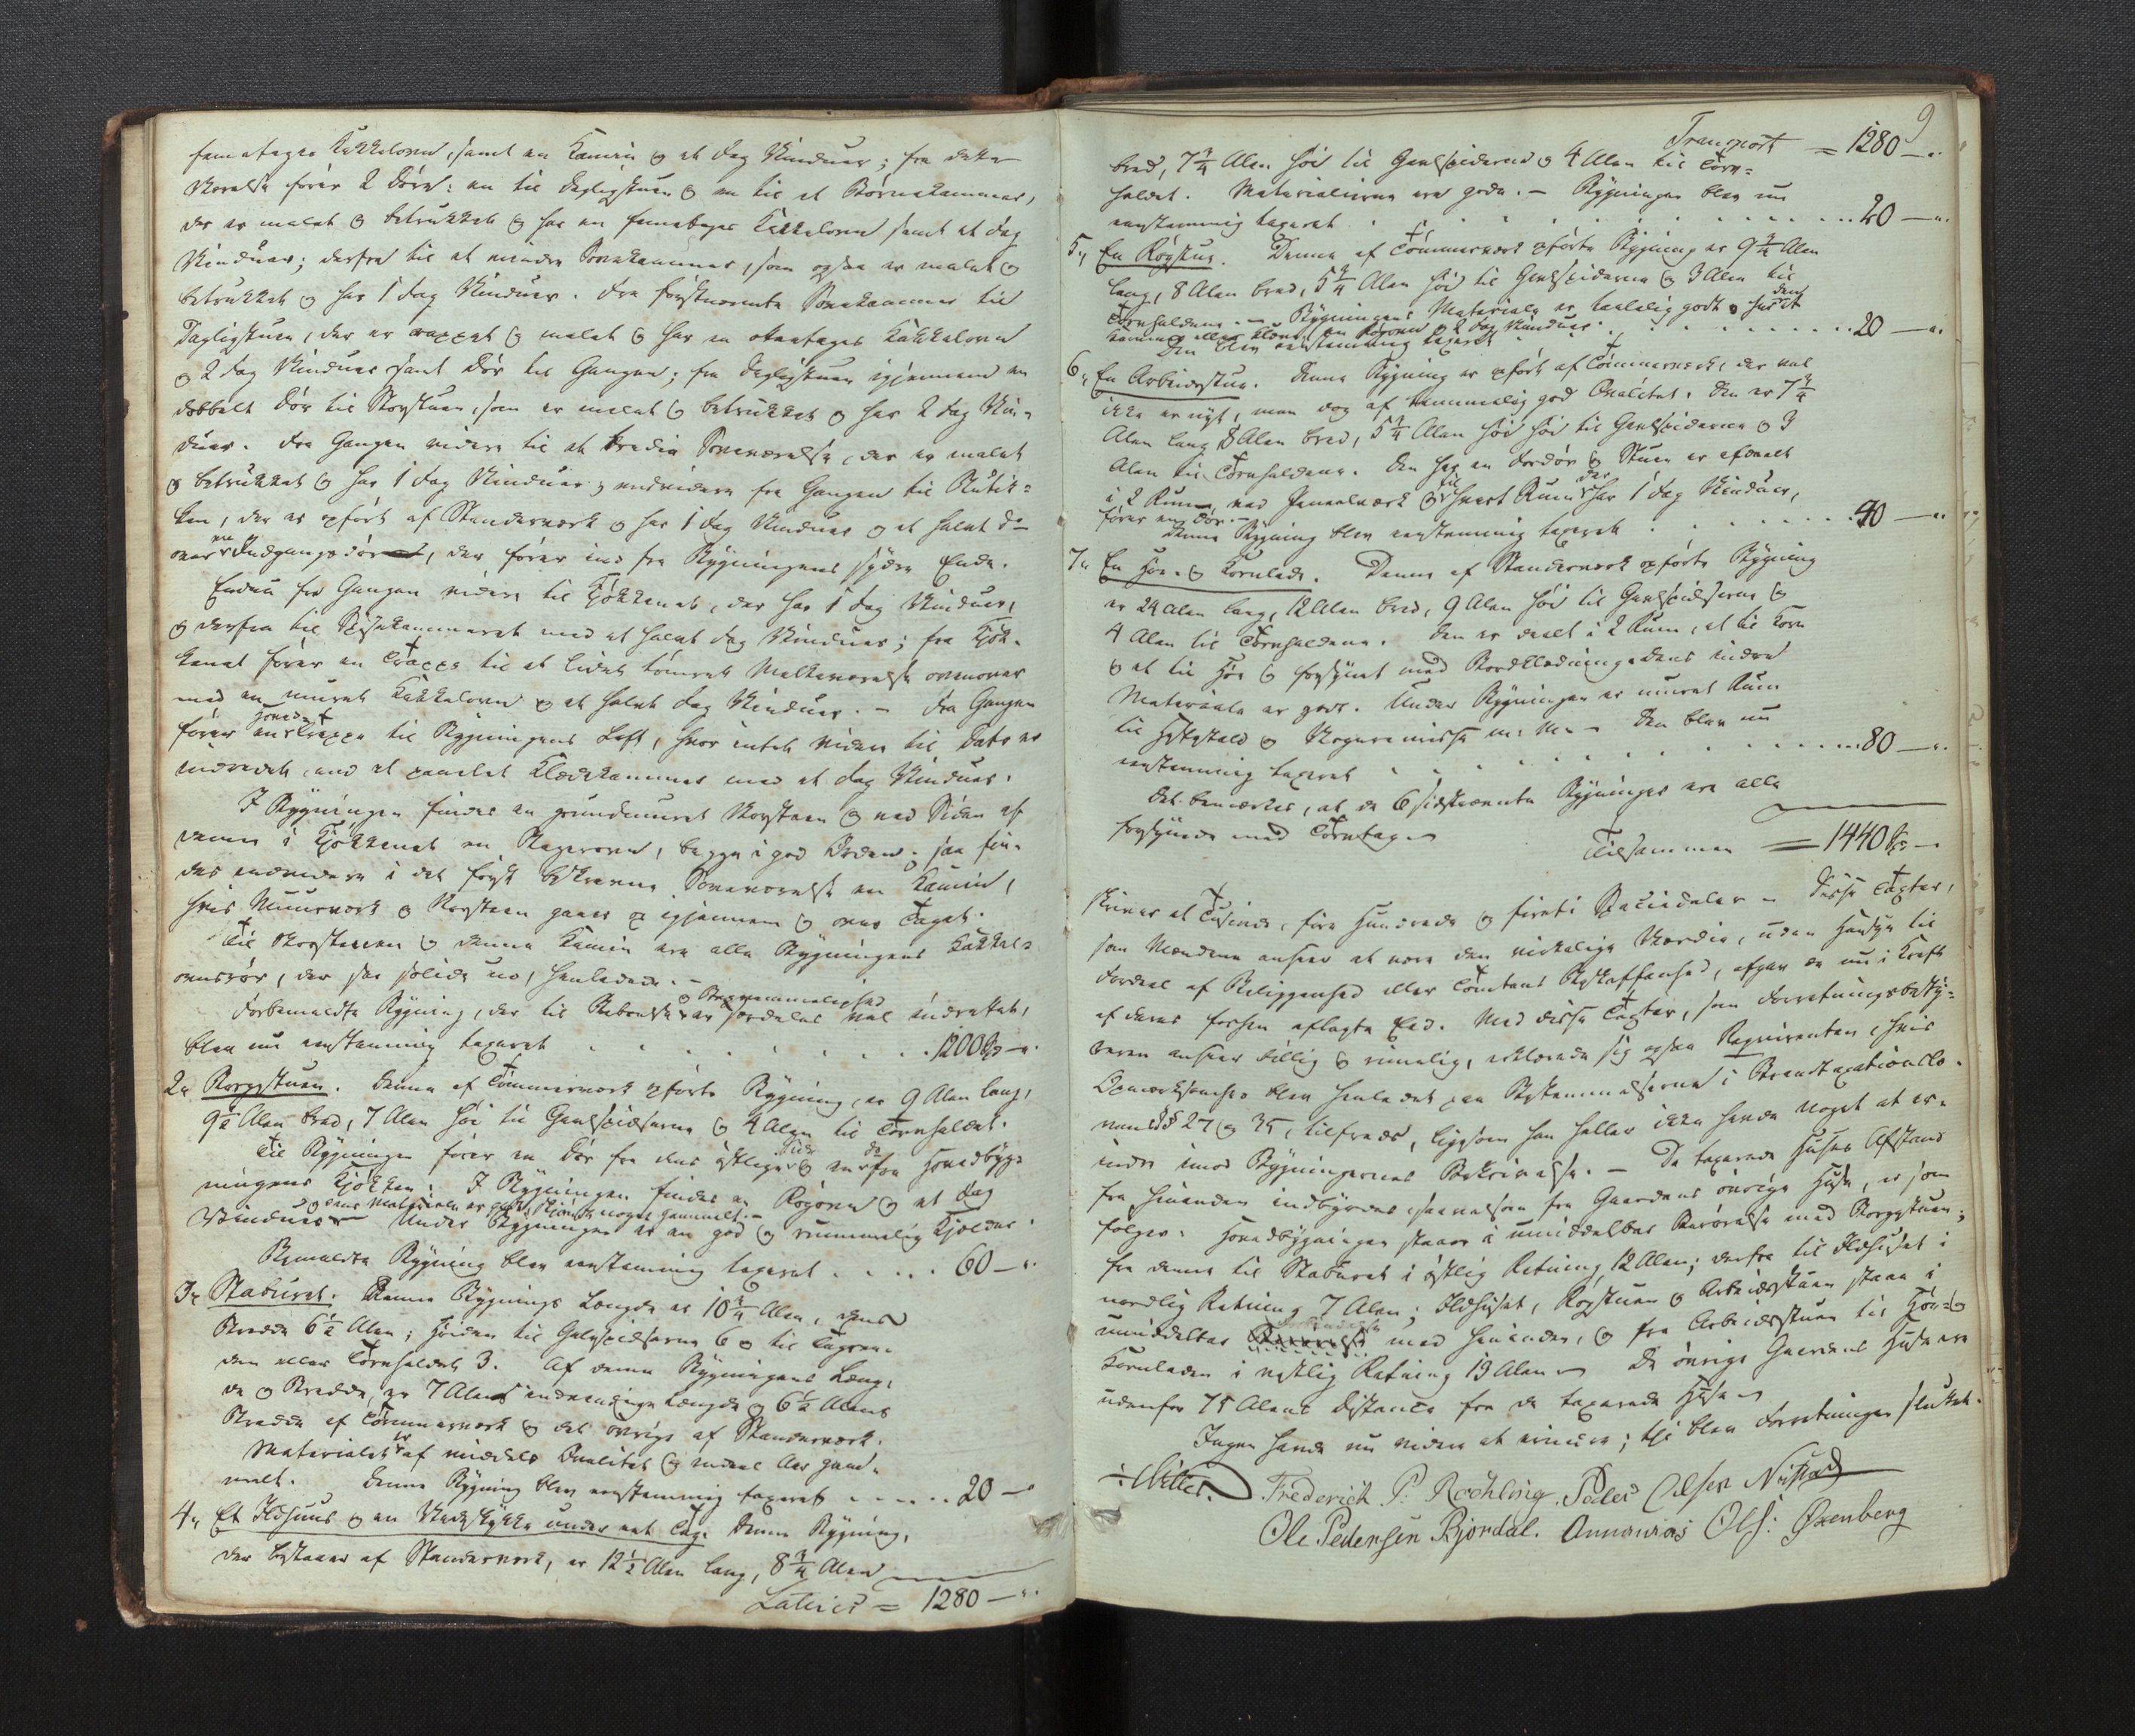 femetages Kakkelovn, samt en Kamin og et Fag Vinduer; fra dette
Værelse fører 2 Døre: en til Dagligstuen og en til et Børnekammer,
der er malet og betrukket og har en femetages Kakkelovn samt et Fag
Vinduer; derfra til et mindre Sovekammer, som ogsaa er malet og
betrukket og har 1 Fag Vinduer. Fra førstnævnte Sovekammer til
Dagligstuen, der er rappet og malet og har en etages Kakkelovn
og 2 Fag Vinduer samt Dør til Gangen; fra Dagligstuen igjennem en
dobbelt Dør til Storstuen, som er malet og betrukket og har 2 Fag Vin-
duer. Fra Gangen videre til et tredie Soveværelse, der er malet
og betrukket og har 1 Fag Vinduer; endvidere fra Gangen til
der er opført af Stenderværk og har 1 Fag Vinduer og et halvt do
over en Indgangsdør, der fører ind fra Bygningens søndre Ende.
Endnu fra Gangen videre til Kjøkkenet, der har 1 Fag Vinduer,
og derfra til Spisekammeret med et halvt Fag Vinduer; fra Kjøk-
kenet fører en Trappe til et lidet tømret Melkeværelse ovenover
med en muret Kakkelovn og et halvt Fag Vinduer. – Fra Gangen
fører en Hoved-Trappe til Bygningens Loft, hvor intet videre til Dato er
indredet, end et panelet Klædekammer med et Fag Vinduer.
I Bygningen findes en grundmuret Skorsteen og ved Siden af
denne i Kjøkkenet en Bagerovn, begge i god Orden; saa fin-
des endvidere i det først beskrevne Soveværelse en Kamin,
hvis Muurværk og Skorsteen gaaer op igjennem og over Taget.
Til Skorstenen og denne Kamin ere alle Bygningens Kakkel-
ovnsrør, der ere solide, henledede. –
Forbemeldte Bygning, der til Beboelse og Beqvemmelighed er særdeles vel indrettet,
blev nu eenstemmig taxeret . . . . . . . . 1200 Sp –
2, Borgstuen. Denne af Tømmerværk opførte Bygning, er 9 Alen lang,
9½ Alen bred, 7 Alen høi til Gavlspidserne og 4 Alen til Tørnholdet.
Til Bygningen fører en Dør fra dens østlige Side og en do fra Hovedbyg-
ningens Kjøkken. I Bygningen findes en Røgovn og et Fag
Vinduer og dens Materiale er godt, skjøndt noget gammelt. – Under Bygningen er en god og rummelig Kjelder.
Bemeldte Bygning blev eenstemmig taxeret . . . . . 60 –
3, Staburet. Denne Bygnings Længde er 10¾ Alen, dens
Bredde 6½ Alen; Høiden til Gavlspidserne 6 og til Tagran-
den eller Tørnholdet 3. Af denne Bygningens Læng-
de og Bredde, er 7 Alens indvendige Længde og 6½ Alens
Bredde af Tømmerværk og det øvrige af Stenderværk.
Materialet er af middels Qvalitet og endeel Aar gam-
melt. Denne Bygning blev eenstemmig taxeret . . . . . 20 –
4, Et Ildhuus og en Vedskykke under eet Tag. Denne Bygning,
der bestaaer af Stenderværk, er 12½ Alen lang, 8¾ Alen
Lateris = 1280 –
9
Transport = 1280 –
bred, 7¾ Alen høi til Gavlspidserne og 4 Alen til Tørn-
holdet. Materialierne ere gode. – Bygningen blev nu
eenstemmig taxeret . . . . . . . . 20 –
5, En Røgstue. Denne af Tømmerværk opførte Bygning er 9¾ Alen
lang, 8 Alen bred, 5¾ Alen høi til Gavlspiderne og 3 Alen til
Tørnholdene. – Bygningens Materiale er taalelig godt og har dens et
Kammer eller Kleve, en Røgovn og 2 Fag Vinduer.
Den blev eenstemmig taxeret . . . . . . . . 20 –
6, En Arbeidsstue. Denne Bygning er opført af Tømmerværk, der vel
ikke er nyt, men dog af temmelig god Qvalitet. Den er 7¾
Alen lang 8 Alen bred, 5¾ Alen høi høi til Gavlspiderne og 3
Alen til Tørnholdene. Den har en Fordør og Stuen er afdeelt
i 2 Rum, ved Panelværk og til hvert Rum der har 1 Fag Vinduer,
fører en Dør. –
Denne Bygning blev eenstemmig taxeret . . . . . . . 40 –
7, En Høe- og Kornlade. Denne af Stenderværk opførte Bygning
er 24 Alen lang, 12 Alen bred, 9 Alen høi til Gavlspidserne og
4 Alen til Tørnholdene. Den er deelt i 2 Rum, et til Korn
og et til Høe og forsynet med Bordklædning. Dens indre
Materiale er godt. Under Bygningen er muret Rum
til Hestestald og Vognremisse m: M: – Den blev nu
eenstemmig taxeret . . . . . . . . . . 80 –
Det bemærkes, at de 6 sidstnævnte Bygninger ere alle
forsynede med Tørvtag. –
Tilsammen = 1440 Sp –
skriver et Tusinde, fire Hundrede og fireti Speciedaler – Disse Taxter,
som Mændene ansaae at være den virkelige Værdie, uden Hensyn til
Fordeel af Beliggenhed eller Tomtens Beskaffenhed, afgav de nu i Kraft
af deres forhen aflagte Eed. Med disse Taxter, som Forretningsbesty-
reren ansaae billig og rimelig, erklærede sig ogsaa Reqvirenten, hvis
Opmærksomhed blev henledet paa Bestemmelserne i Brandtaxationslo-
vens §§ 27 og 35, tilfreds, ligesom han heller ikke havde noget at er-
indre imod Bygningernes Beskrivelse. – De taxerede Huses Afstand
fra hinanden indbyrdes saavelsom fra Gaardens øvrige Huse, er som
følger: Hovedbygningen staaer i umiddelbar Berørelse med Borgstuen;
fra denne til Staburet i østlig Retning 12 Alen; derfra til Ildhuset i
nordlig Retning 7 Alen; Ildhuset, Røgstuen og Arbeidsstuen staae i
umiddelbar Forbindelse med hinanden, og fra Arbeidsstuen til Høe- og
Kornladen i vestlig Retning 19 Alen – De øvrige Gaardens Huse ere
udenfor 75 Alens Distance fra de taxerede Huse –
Ingen havde nu videre at erindre; thi blev Forretningen sluttet.
Frederich P: Rochling. Peder Olsen
Ole Pedersen Bjørdal. Annanias Ols: Øxenberg